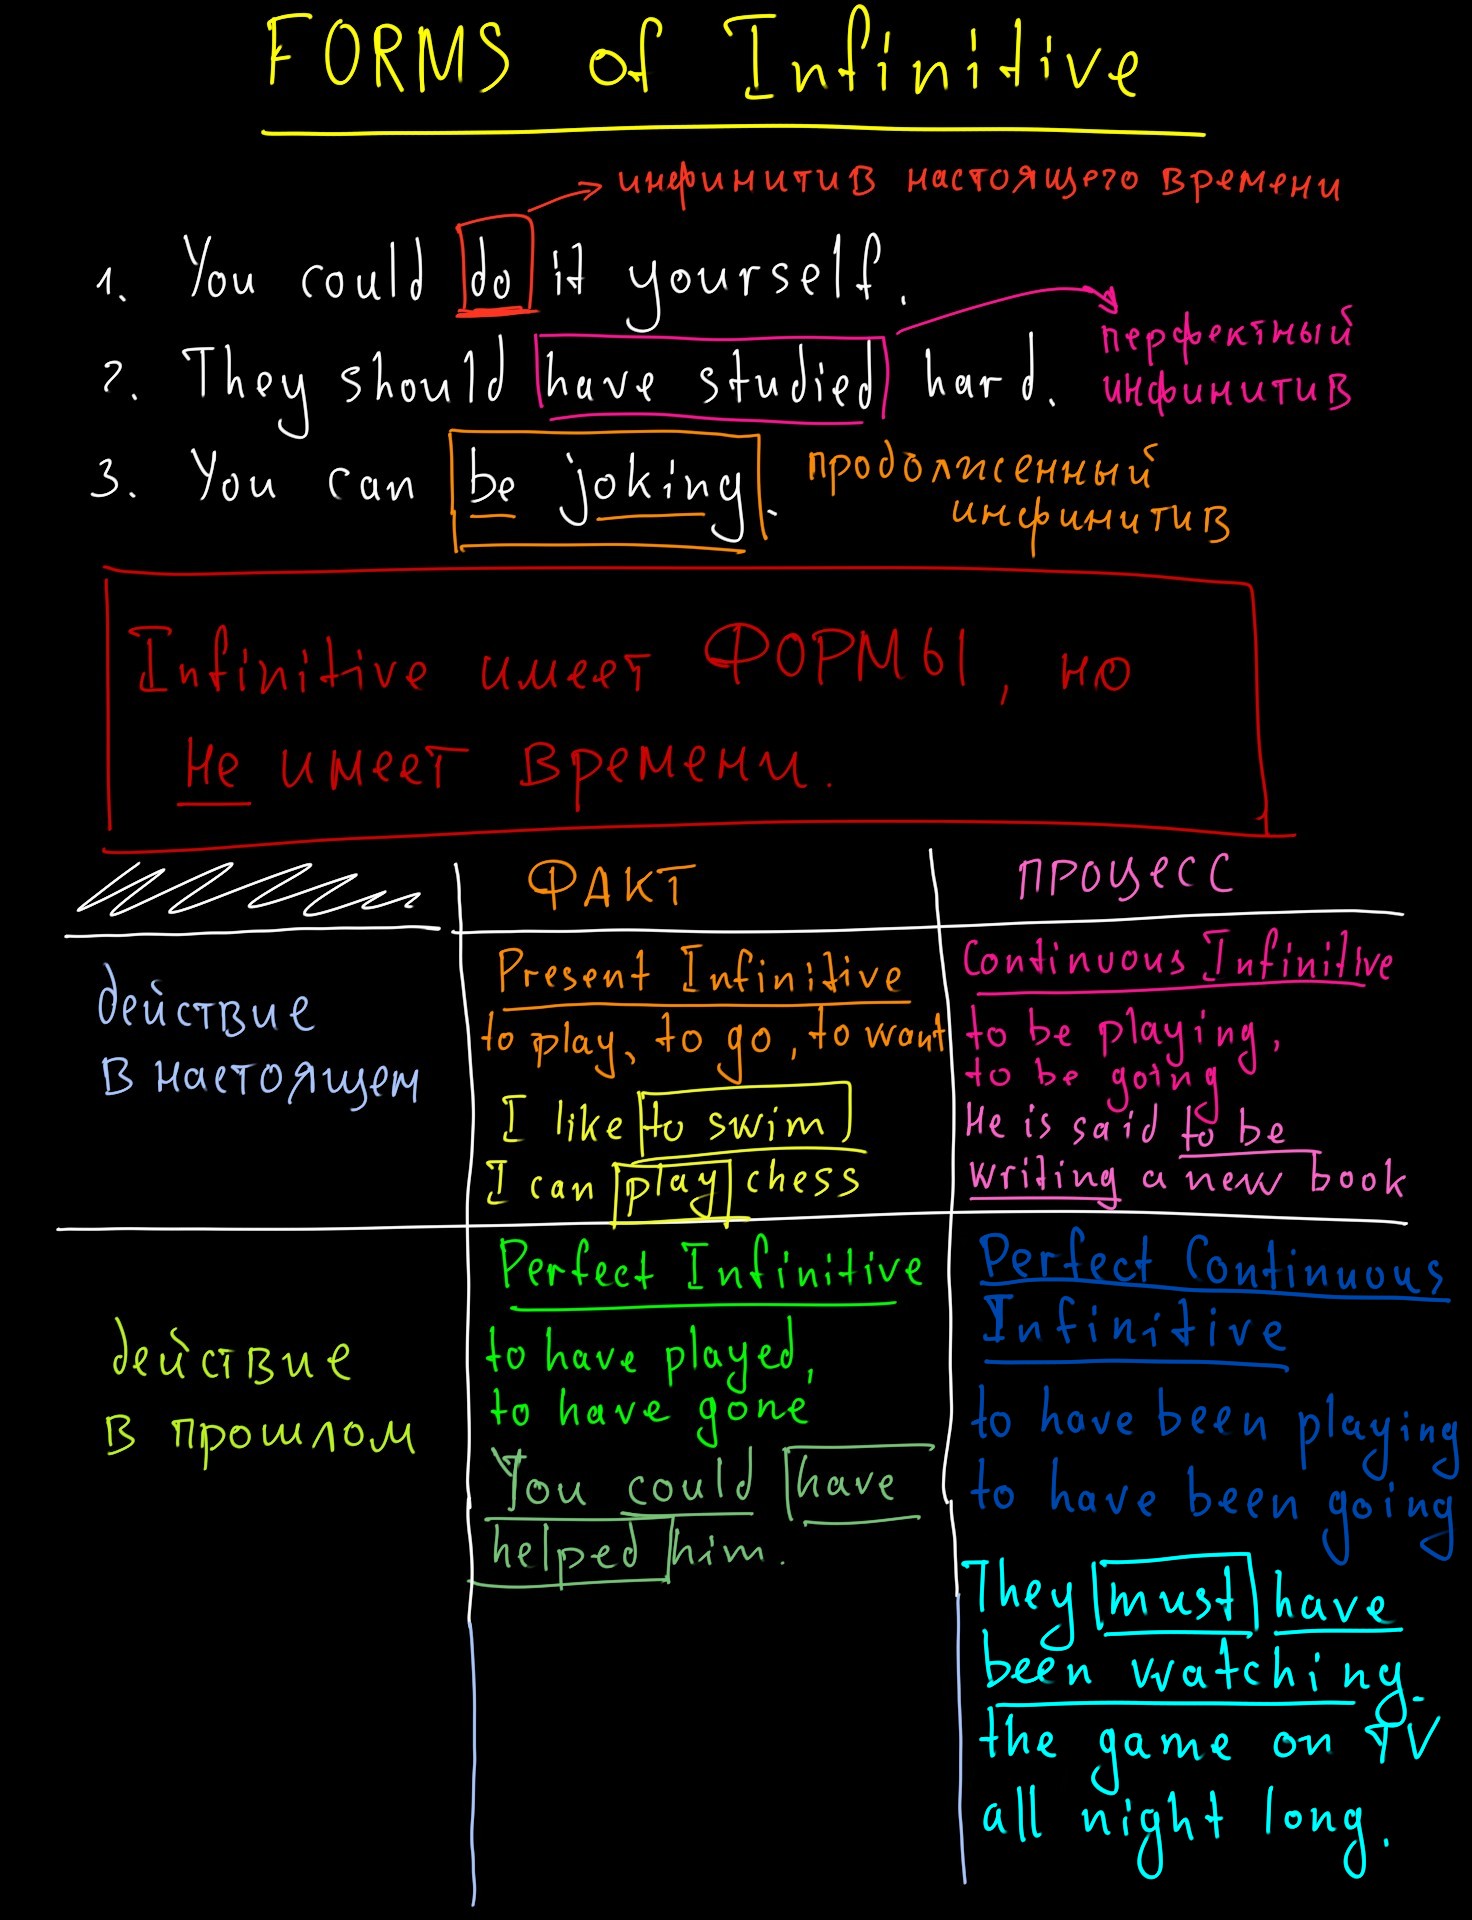 FORMS of Infinitive
инфинитив настоящего времени
1. You could do it yourself.
2. They should have studied hard.
перфектный
инфинитив
3. You can be joking.
продолженный
инфинитив
Infinitive имеет ФОРМЫ, но
не имеет времени.
ФАКТ
ПРОЦЕСС
действие
в настоящем
Present Infinitive
to play, to go, to want
I like to swim
I can play chess
Continuous Infinitive
to be playing,
to be going
He is said to be
writing a new book
действие
в прошлом
Perfect Infinitive
to have played,
to have gone
You could have
helped him.
Perfect Continuous
Infinitive
to have been playing
to have been going
They must have
been watching
the game on TV
all night long.